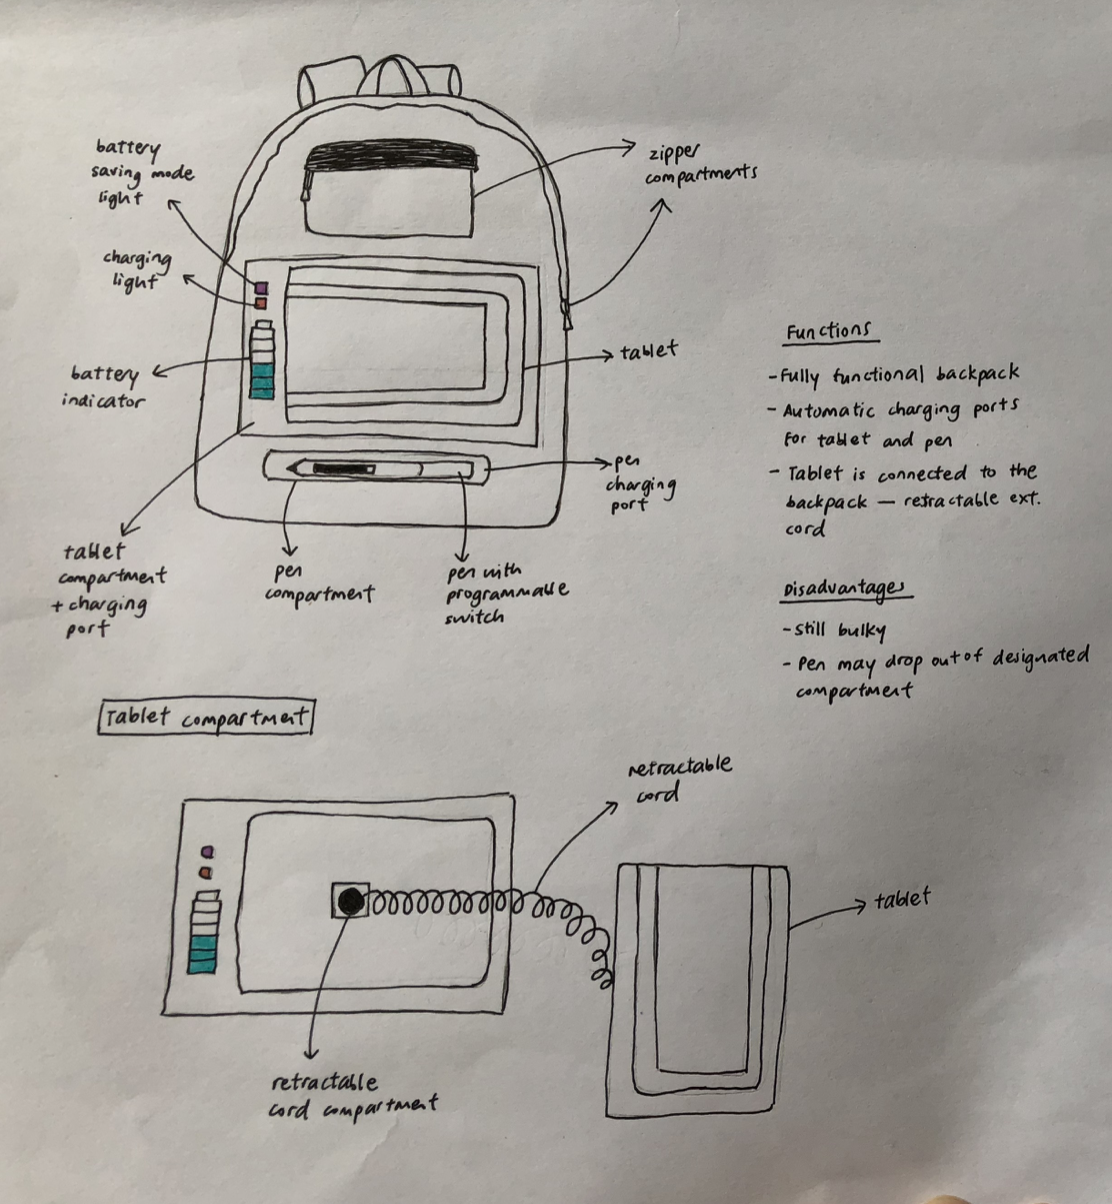 battery
saving mode
light
charging
light
battery
indicator
tablet
compartment
+ charging
port
zipper
compartments
tablet
pen
charging
port
pen
compartment
pen with
programmable
switch
Functions
- Fully functional backpack
- Automatic charging ports
for tablet and pen
- Tablet is connected to the
backpack — retractable ext.
cord
Disadvantages
- Still bulky
- Pen may drop out of designated
compartment
Tablet compartment
retractable
cord
tablet
retractable
cord compartment